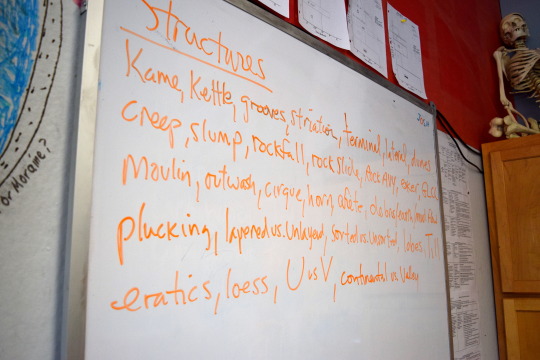 Structures
Kame, Kettle, grooves, striation, terminal, lateral, dunes
creep, slump, rockfall, rock slide, Rock Avy, esker,
Moulin, outwash, cirque, horn, arête,
plucking, layered vs. Unlayered, sorted vs. unsorted, lobes, Till
eratics, loess, U vs V, continental vs Valley
or Moraine?